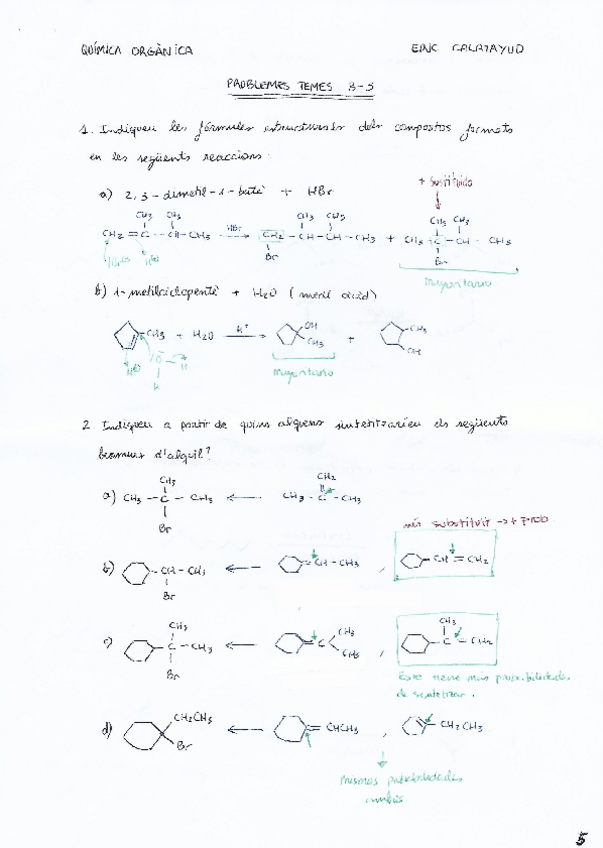 QUÍMICA ORGÀNICA
ERIC CALATAYUD
PROBLEMES TEMES 3-5
1. Indiqueu les fórmules estructurals dels compostos formats
en les següents reaccions:
a) 2,3-dimetil-1-butè + HBr
+ sustituido
CH3 CH3 CH3 CH3 CH3 CH3
CH2 = C - CH - CH3 HBr CH2 - CH - CH - CH3 + CH3 - C - CH - CH3
Br Br
Mayoritario
b) 1-metilciclopentè + H2O (medi àcid)
CH3 + H2O H+ OH CH3 + CH3 OH
Mayoritario
2. Indiqueu a partir de quins alquens sintetitzaríeu els següents
bromurs d'alquil?
CH3 CH2
a) CH3 - C - CH3 CH3 - C - CH3
Br
més substituït → +
b) CH - CH3 = CH - CH3 , CH = CH2
Br
CH3 CH3
c) C - CH3 = C CH3 CH3 , C = CH2
Br
Este tiene más probabilidades
de sintetizar.
d) CH2CH3 Br = CHCH3 , CH2CH3
Mismas probabilidades
ambos
5